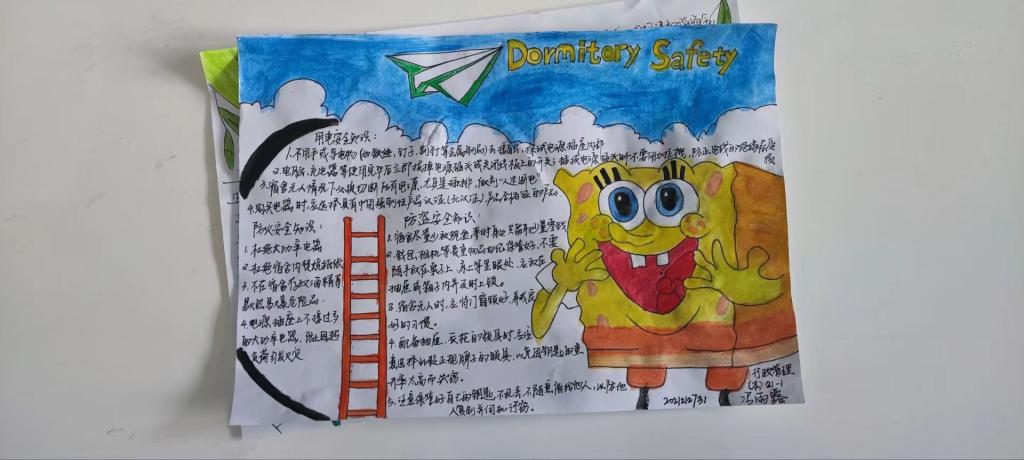 Dormitory Safety
用电安全知识:
1.不用手或导电物(如铁丝,钉子,别针等金属制品)去接触、探试电源插座内部
2.电脑、充电器等使用完毕后立即拔掉电源插头或关闭终板上的开关;插拔电源插头时不要用力拉拽,防止电线的绝缘层受损
3.宿舍无人情况下必须切断所有电源,尤其是插排,做到"人走断电"
4.购买电器时,应选择具有中国强制性产品认证(3C认证),产品合格证的产品
防火安全知识:
1.杜绝大功率电器
2.杜绝宿舍内焚烧纸张
3.不在宿舍存放酒精等
易燃易爆危险品.
4.电源插座上不接过多
的大功率电器,防止因超
负荷引起火灾
防盗安全知识:
1.宿舍尽量少放现金,平时身边只留有少量零钱
2.钱包、相机等贵重物品切记保管好,不要
随手放在桌子上、床上等显眼处,应放在
抽屉或箱子内并及时上锁。
3.宿舍无人时,应将门窗锁好,养成良
好的习惯。
4.配备抽屉、衣柜的锁具时,应注
意选择比较正规牌子的锁具,以免因钥匙的重
开率太高而失窃。
5.注意保管好自己的钥匙,不乱丢、不随意借给他人,以防他
人复制并伺机行窃。
行政管理
(本)21-1
冯雨露